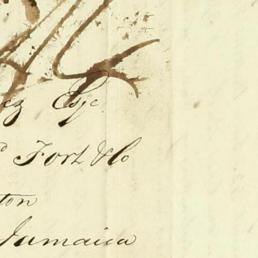 ez Esqr
Fort & Co
ton
Jamaica